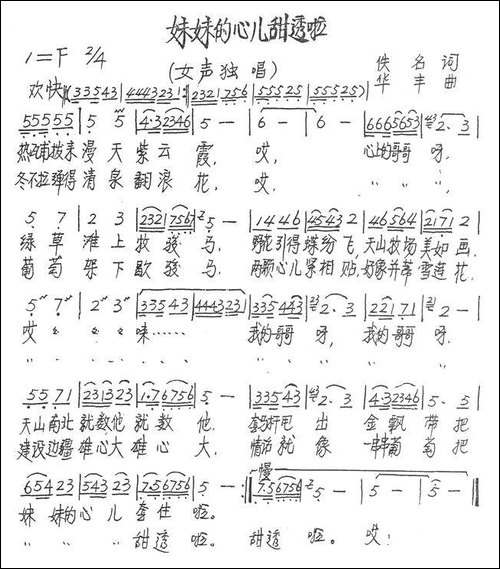 妹妹的心儿甜透啦
1=F 2/4
(女声独唱)
佚名词
华丰曲
欢快
33543 | 444323 | 2321 756 | 55525 | 55525
55555 | 5 5 | 4·32346 | 5 — | 6 — | 6 — | 6665653 | 2·3
热瓦甫拨来漫天紫云霞, 哎, 心上的哥哥呀,
冬不拉弹得清泉翻浪花, 哎, 〃 〃 〃
5 7 | 2 3 | 232 756 | 5 — | 1446 | 45432 | 46564 | 21712
绿草滩上牧骏马, 野花引得蝶纷飞, 天山牧场美如画.
葡萄架下歇骏马. 两颗心儿紧相贴, 好象并蒂雪莲花.
5 7 | 2 3 | 33543 | 444323 | 335443 | 2·3 | 22171 | 2 —
哎 〃 〃 咪…… 我的哥哥呀, 我的哥哥呀,
5571 | 231323 | 1·76756 | 5 — | 33543 | 2·3 | 4·32346 | 5·5
天山南北就数他就数他. 套马杆甩出金飘带把
建设边疆雄心大雄心大. 情话就像一串串葡萄把
慢
65423 | 54323 | 756756 | 5 — | 756756 | 5 — | 5 — | 5 —
妹妹的心儿套住啦.
〃 〃 〃 〃 甜透啦. 甜透啦. 哎!